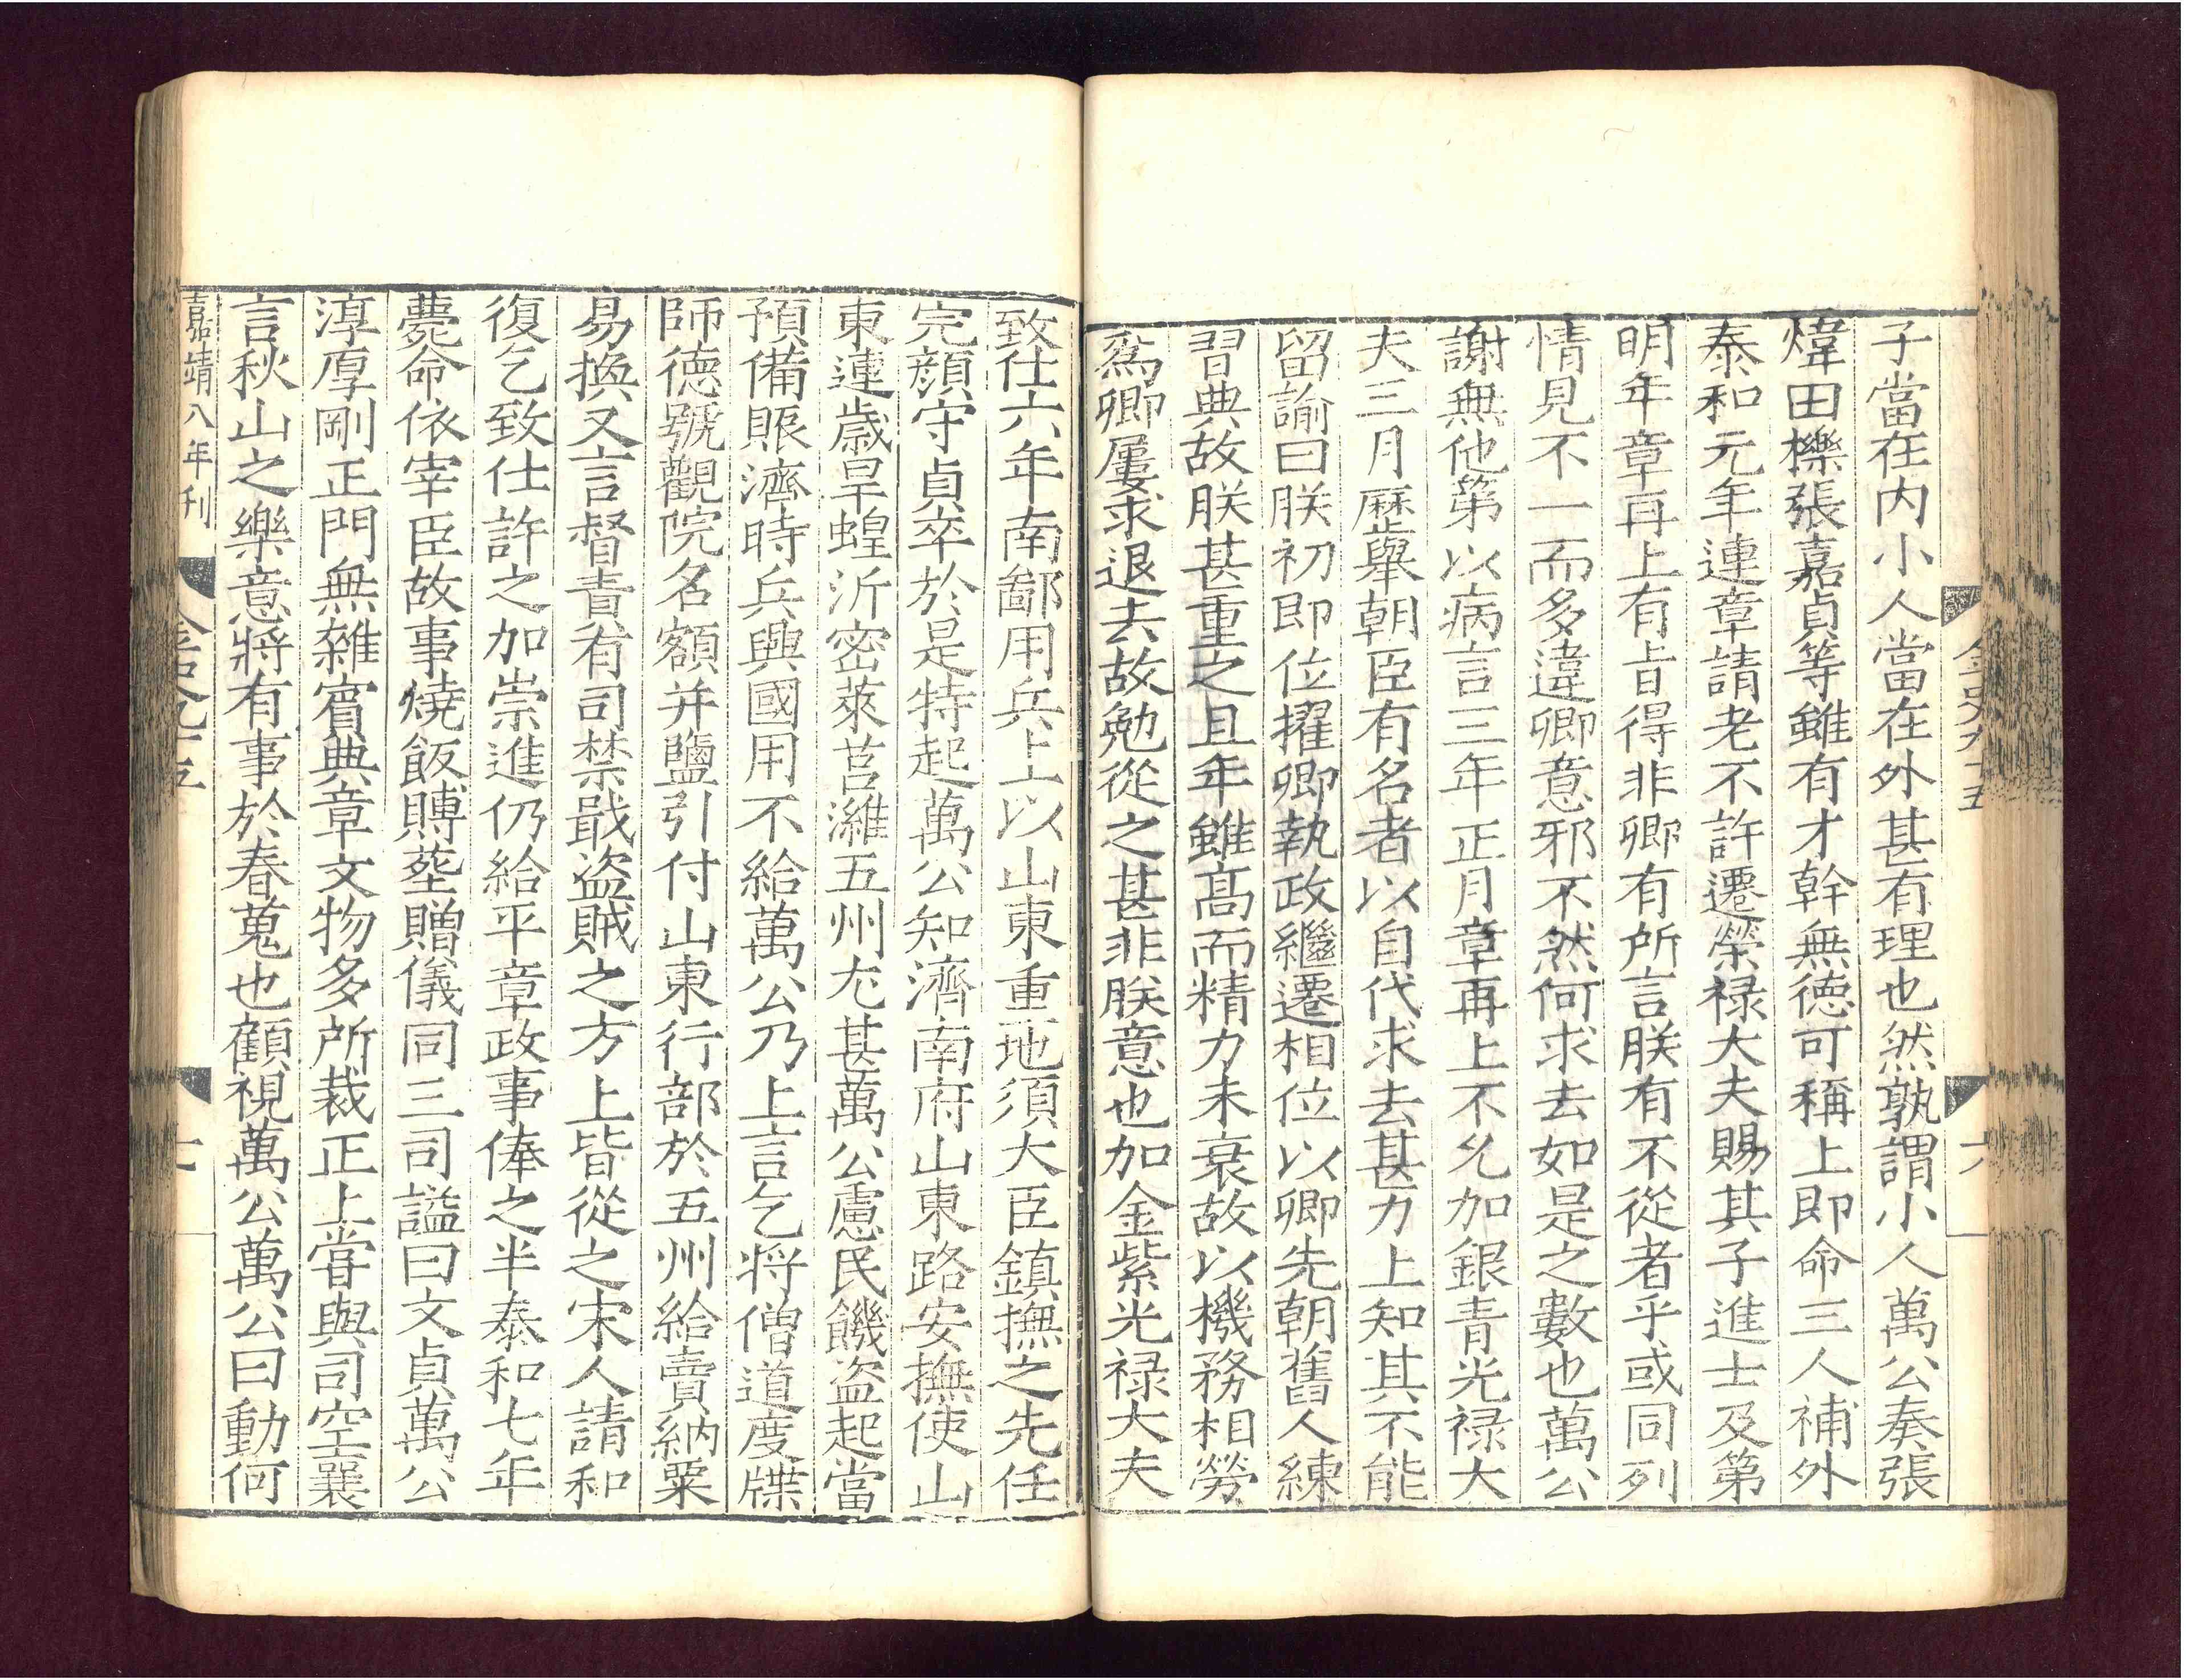 金史九十五
六
子當在内小人當在外甚有理也然孰謂小人萬公奏張
煒田櫟張嘉貞等雖有才幹無德可稱上即命三人補外
泰和元年連章請老不許遷榮禄大夫賜其子進士及第
明年章再上有旨得非卿有所言朕有不從者乎或同列
情見不一而多違卿意邪不然何求去如是之數也萬公
謝無他第以病言三年正月章再上不允加銀青光禄大
夫三月歷舉朝臣有名者以自代求去甚力上知其不能
留諭曰朕初即位擢卿執政繼遷相位以卿先朝舊人練
習典故朕甚重之且年雖髙而精力未衰故以機務相勞
爲卿屢求退去故勉從之甚非朕意也加金紫光禄大夫
致仕六年南鄙用兵上以山東重地須大臣鎮撫之先任
完顔守貞卒於是特起萬公知濟南府山東路安撫使山
東連歲旱蝗沂密萊莒濰五州尤甚萬公慮民饑盗起當
預備賑濟時兵興國用不給萬公乃上言乞将僧道度牒
師德號觀院名額并鹽引付山東行部於五州給賣納粟
易換又言督責有司禁戢盗賊之方上皆從之宋人請和
復乞致仕許之加崇進仍給平章政事俸之半泰和七年
薨命依宰臣故事燒飯賻葬贈儀同三司謚曰文貞萬公
淳厚剛正門無雜賓典章文物多所裁正上嘗與司空襄
言秋山之樂意將有事於春蒐也顧視萬公萬公曰動何
嘉靖八年刊
金史九十五
七